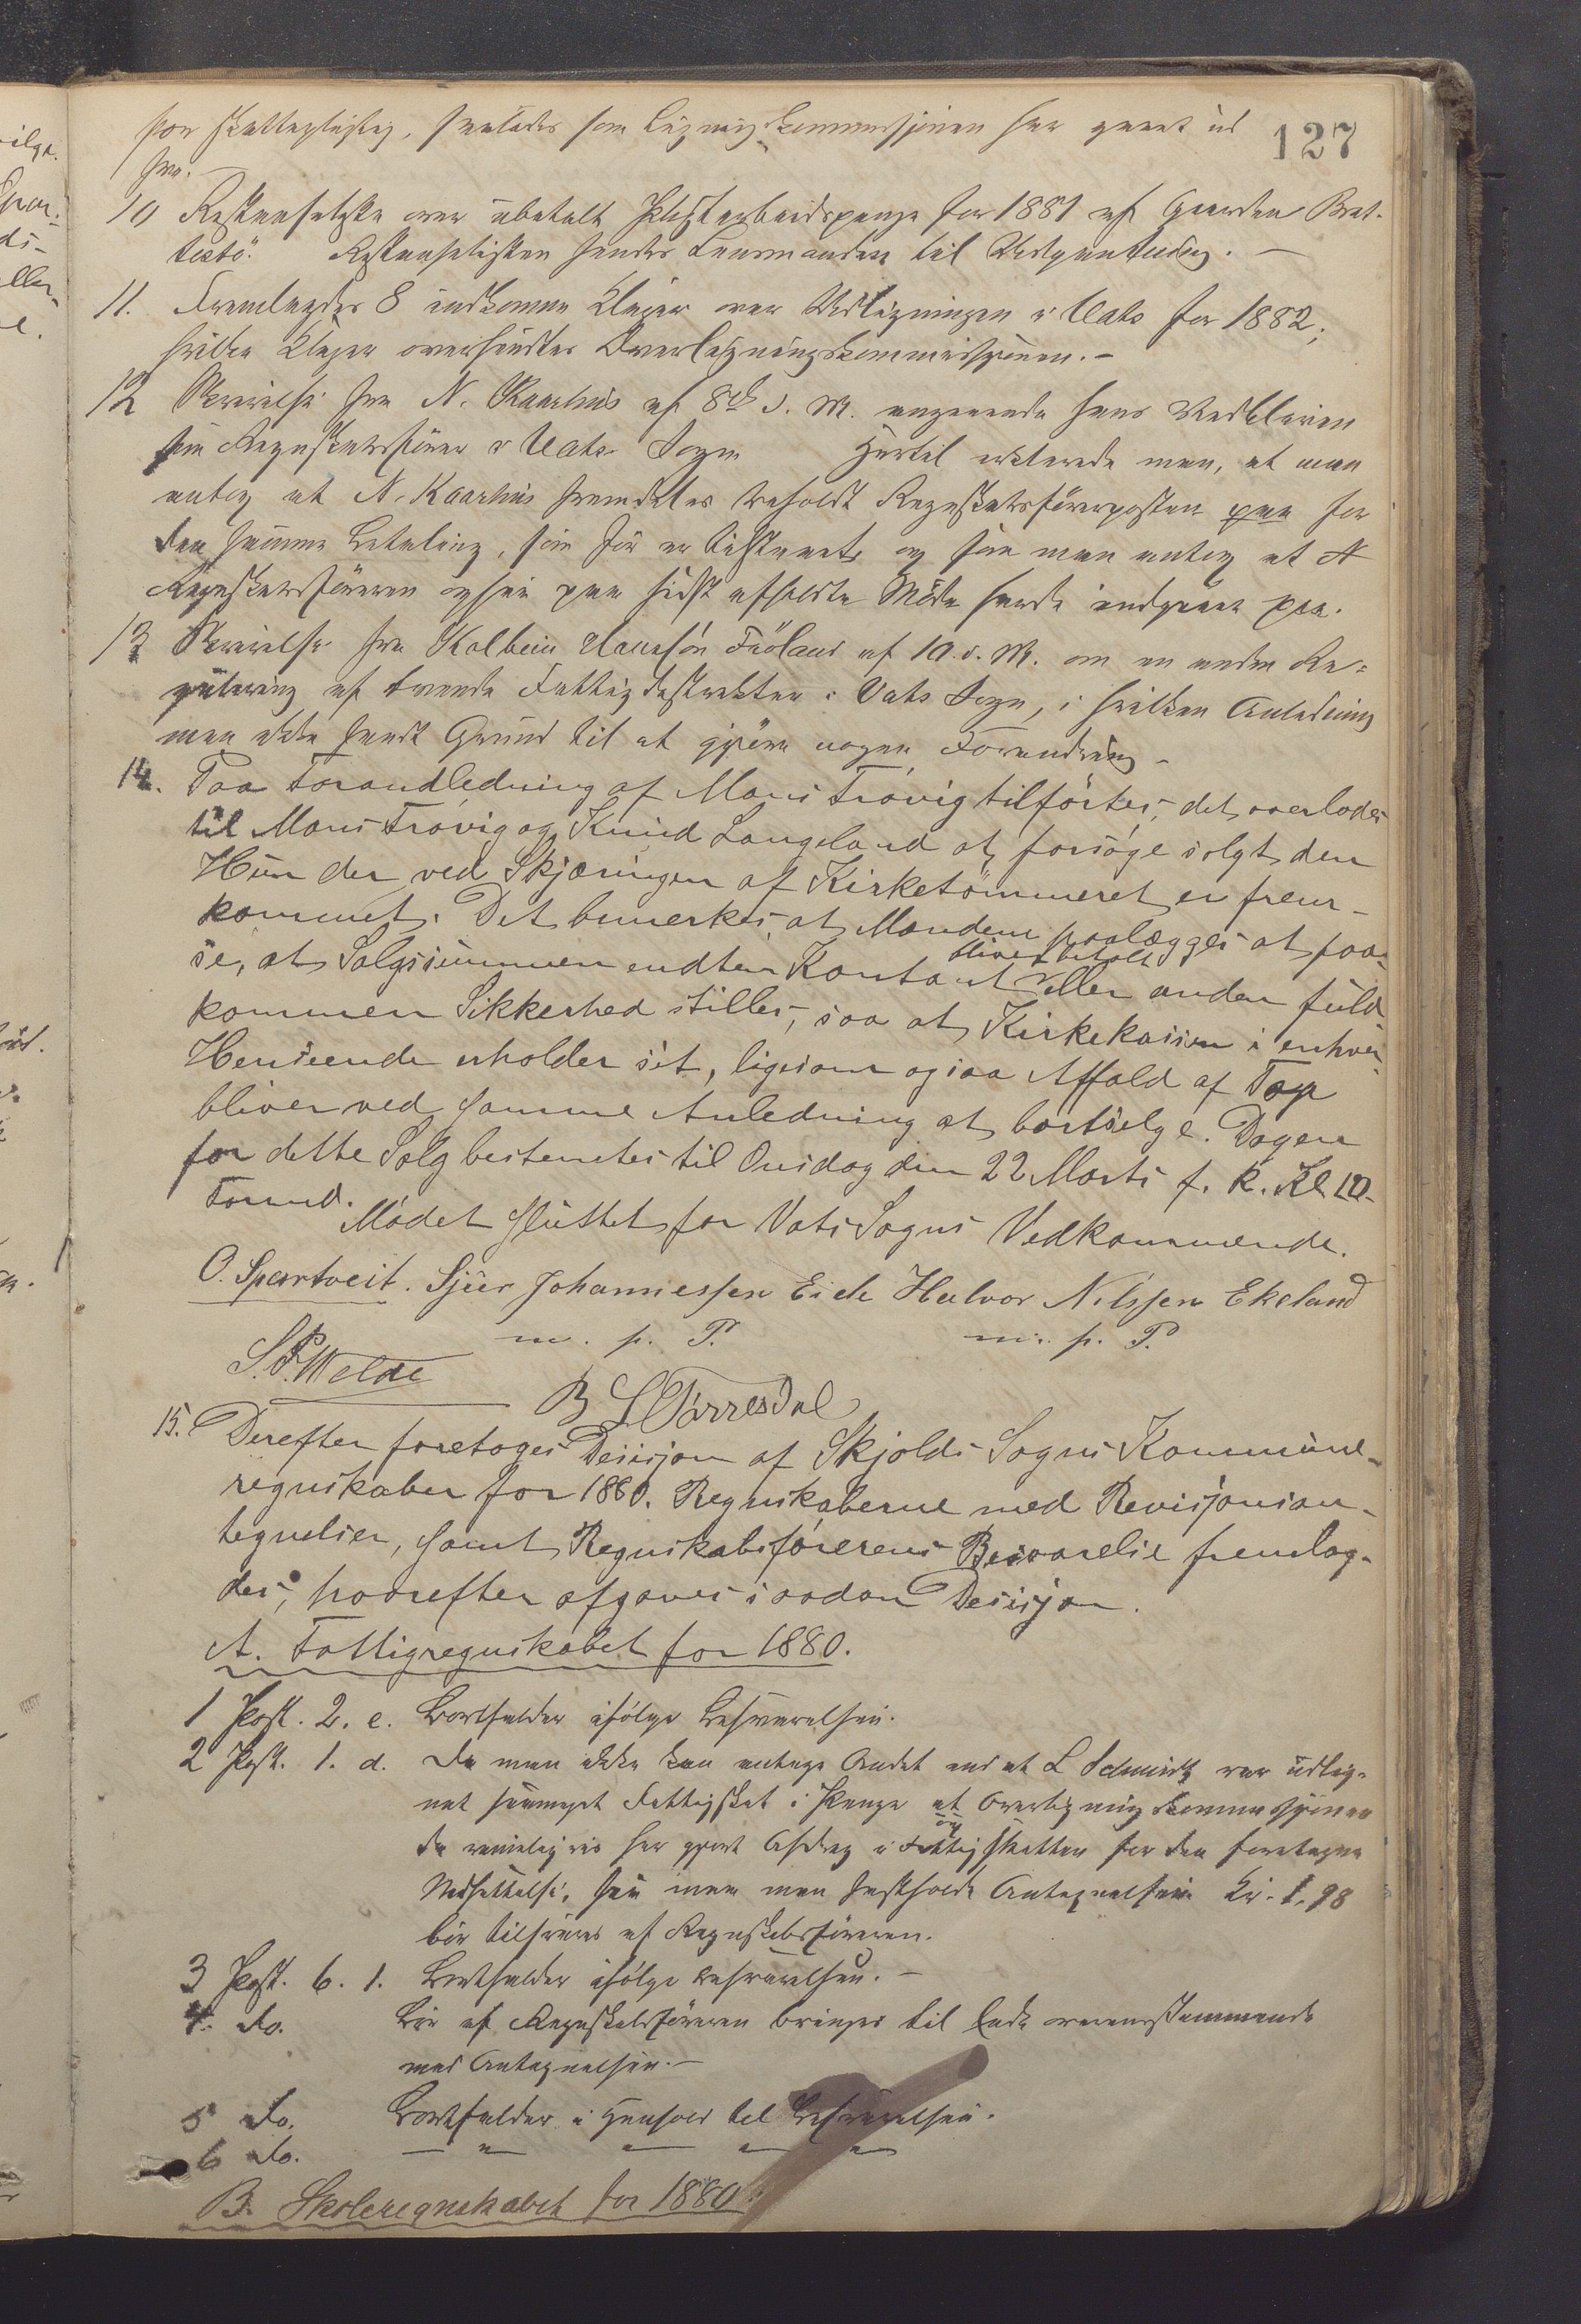 127
for skattepligtig, saaledes som Ligningskommissjonen har gaaet ud
fra.
10 Restanseliste over ubetalt Pligtarbeidspenge for 1881 af Gaarden Brat-
testö. Restanselisten sendes Lensmanden til Udpantning. —
11. Fremlagdes 8 indkomne Klager over Udligningen i Vats for 1882;
hvilke Klager oversendtes Overligningskommissjonen. —
12 Skrivelse fra N. Kaarhus af 8de d. M. angaaende hans Vedbliven
som Regnskabsförer i Vats Sogn Hertil erklærede man, at man
antog at N. Kaarhus fremdeles beholdt Regnskabsförerposten paa for
den samme Betaling, som för er tilstaaet og som man antog at
Regnskabsföreren ogsaa paa sidst afholdte Möde havde indgaaet paa.
13 Skrivelse fra Kolbein Clausön Fiöland af 10 d. M. om en anden Re-
gulering af tvende Fattigdistrikter i Vats Sogn, i hvilken Anledning
man ikke fandt Grund til at gjöre nogen Forandring —
14. Paa Foranledning af Mons Trövig tilförtes, det overlodes
til Mons Trövig og Knud Langeland at forsöge solgt den
Hun der ved Skjæringen af Kirketömmeret er frem-
kommet. Det bemerkes, at Mændene paalægges at paa-
se, at Salgssummen endten Kontant bliver betalt eller anden fuld-
kommen Sikkerhed stilles, saa at Kirkekassen i enhver
Henseende erholder sit, ligesom ogsaa Affald af Top
bliver ved samme Anledning at bortselge. Dagen
for dette Salg bestemtes til Onsdag den 22 Marts f. k. Kl. 10
Formd.
Mödet sluttet for Vats Sogns Vedkommende.
O. Spartveit. Sjur Johannessen Eide Halvor Nilssen Ekeland
m. p. P. m. p. P.
S. P. Welde
B L Torresdal
15. Derefter foretoges Desisjon af Skjolds Sogns Kommune-
regnskaber for 1880. Regnskaberne med Revisjonsan-
tegnelser, samt Regnskabsförerens Besvarelse fremlag-
des, hvorefter afgaves saadan Desisjon.
A. Fattigregnskabet for 1880.
1 Post. 2. e. Bortfalder ifölge Besvarelsen.
2 Post. 1. d. Da man ikke kan antage Andet end at L Schmidt var udlig-
net saameget Fattigskat i Penge at Overligningskommissjonen
da rimeligvis har gjort Afdrag i Fattigskatten for den foretagne
Nedsettelse, saa maa man fastholde Antegnelsen Kr. 1,98
bör tilsvares af Regnskabsföreren.
3 Post. 6. 1. Bortfalder ifölge Besvarelsen. —
4. do. Bör af Regnskabsföreren bringes til Ende overensstemmende
med Antegnelsen. —
5 do. Bortfalder i Henhold til Besvarelsen.
6 do. — " — " —
B. Skoleregnskabet for 1880.